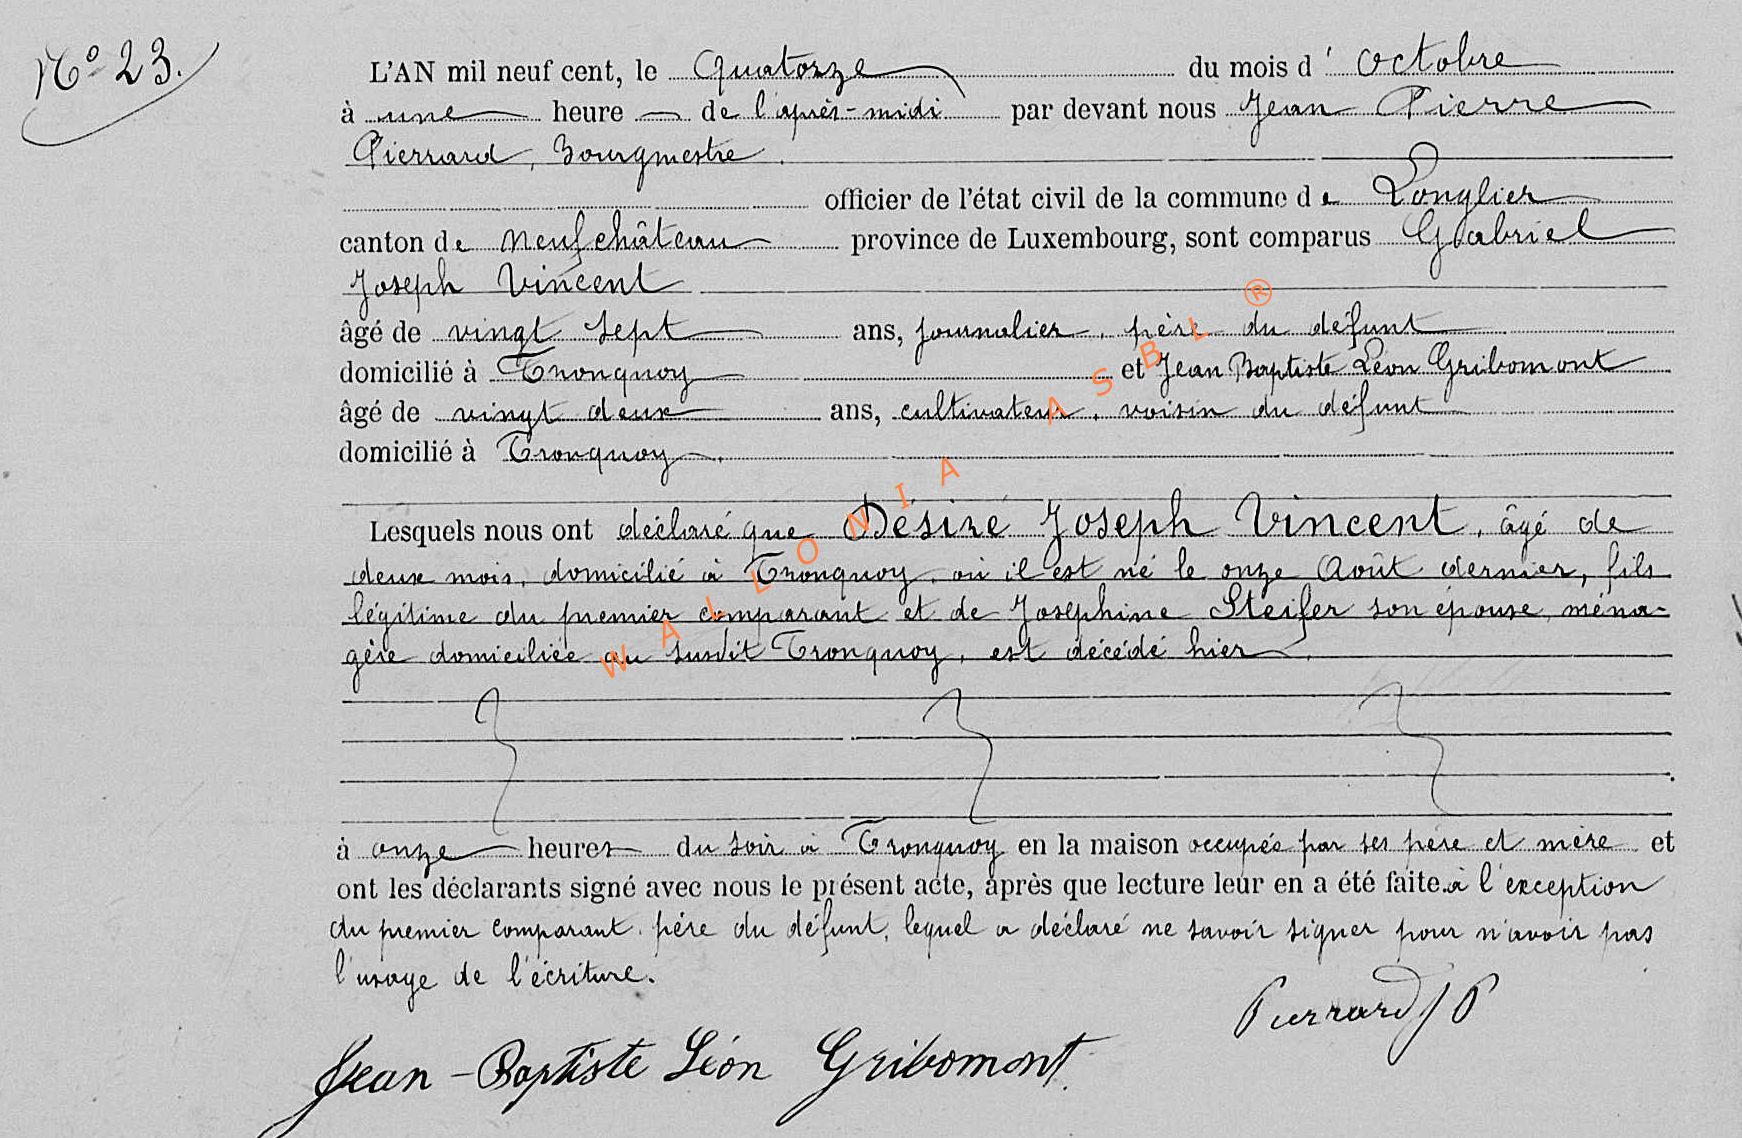 N° 23.
L'AN mil neuf cent, le Quatorze du mois d' Octobre
à une heure de l'après-midi par devant nous Jean Pierre
Pierrard, Bourgmestre.
officier de l'état civil de la commune de Longlier
canton de Neufchâteau province de Luxembourg, sont comparus Gabriel
Joseph Vincent
âgé de vingt sept ans, journalier, père du défunt
domicilié à Tronquoy et Jean Baptiste Léon Gribomont
âgé de vingt deux ans, cultivateur, voisin du défunt
domicilié à Tronquoy.
Lesquels nous ont déclaré que Désiré Joseph Vincent, âgé de
deux mois, domicilié à Tronquoy, où il est né le onze Août dernier, fils
légitime du premier comparant et de Joséphine Steifer son épouse, ména-
gère domiciliée au susdit Tronquoy, est décédé hier.
à onze heures du soir à Tronquoy en la maison occupée par ses père et mère et
ont les déclarants signé avec nous le présent acte, après que lecture leur en a été faite. à l'exception
du premier comparant, père du défunt, lequel a déclaré ne savoir signer pour n'avoir pas
l'usage de l'écriture.
Pierrard J P
Jean-Baptiste Léon Gribomont.
WALLONIA ASBL ®